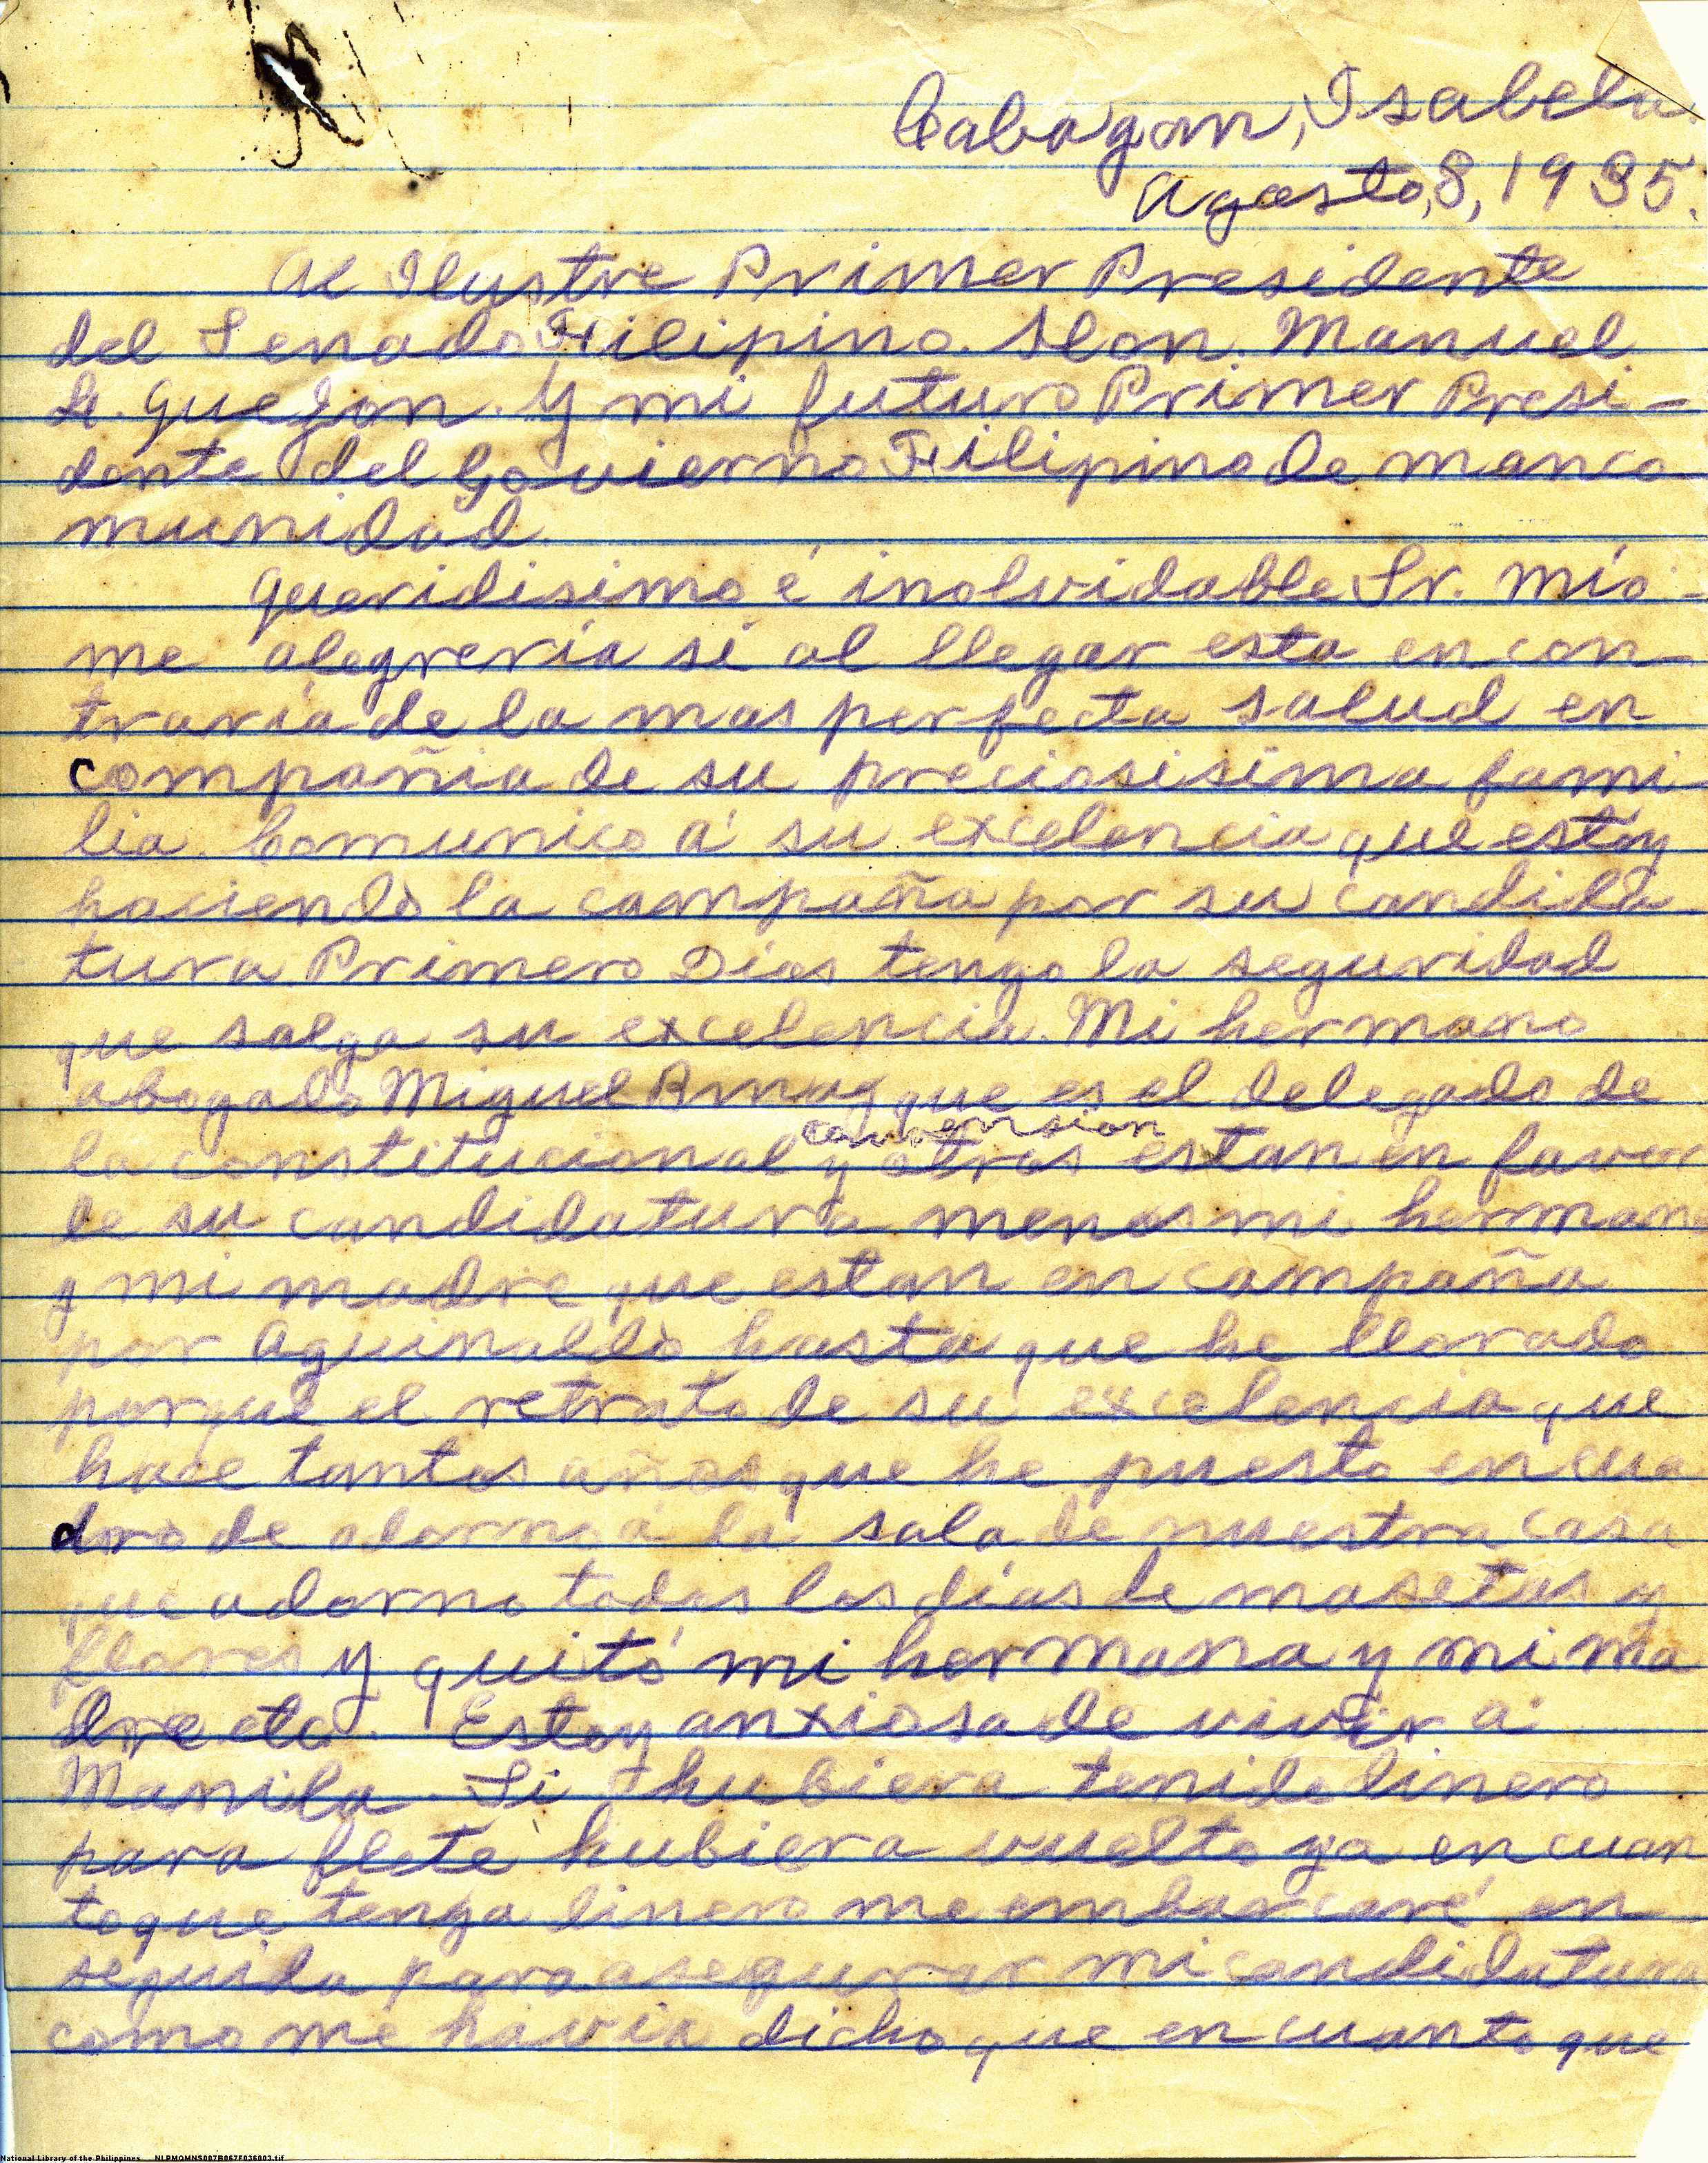 Cabagan, Isabela.
Agosto, 8, 1935.
Al Ilustre Primer Presidente
del Senado Filipino. Hon. Manuel
L. Quezon. Y mi futuro Primer Presi-
dente del Govierno Filipino de manco
munidad.
Queridisimo é inolvidable Sr. mío -
me alegreria si al llegar esta encon-
traría de la mas perfecta salud en
compañia de su preciosisima fami-
lia. Comunico á su excelencia que estoy
haciendo la campaña por su candida
tura Primero Dios tengo la seguridad
que salga su excelencia. Mi hermano
abogado Miguel que es el delegado de
convension
la constitucional y otros estan en favor
de su candidatura menos mi hermana
y mi madre que estan en campaña
por Aguinaldo hasta que he llorado
porque el retrato de su excelencia que
hace tantos años que he puesto en cua
dro de adorno á la sala de nuestra casa
que adorno todos los días de masetas y
flores y quitó mi hermana y mi ma
dre etc. Estoy anxiosa de vivir á
Manila. Si hubiera tenido dinero
para flete hubiera vuelto ya en cuan
to que tenga dinero me embarcaré en-
seguida para asegurar mi candidatura
como me havia dicho que en cuanto que
National Library of the Philippines NLPMQMNS007B067F036003.tif